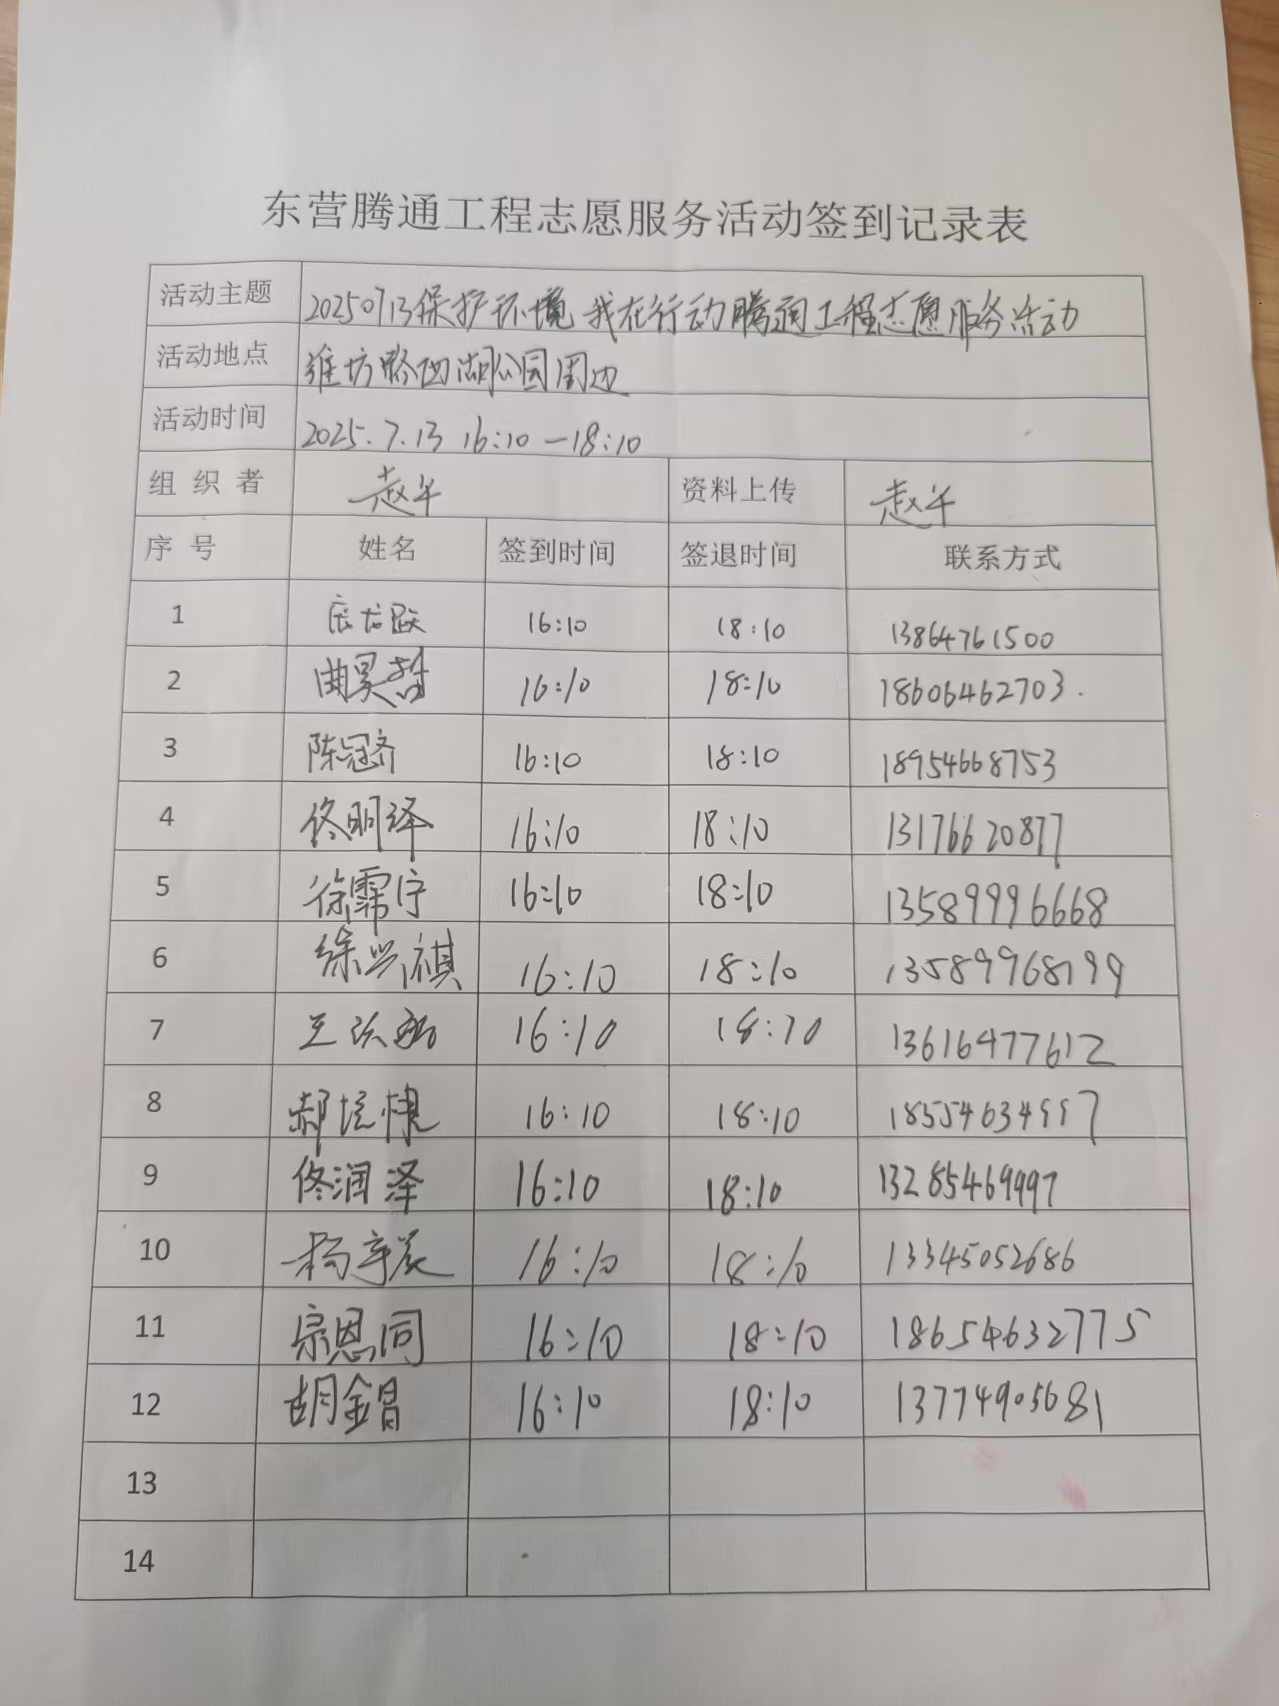 东营腾通工程志愿服务活动签到记录表
活动主题 20250713保护环境 我在行动 腾润工程志愿服务活动
活动地点 潍坊路西湖公园周边
活动时间 2025.7.13 16:10—18:10
组织者 赵华 资料上传 赵华
序号 姓名 签到时间 签退时间 联系方式
1 16:10 18:10 13864761500
2 曲昊喆 16:10 18:10 18606462703.
3 陈冠齐 16:10 18:10 18954668753
4 佟明泽 16:10 18:10 13176620877
5 徐霈宁 16:10 18:10 13589996668
6 徐兴祺 16:10 18:10 13589968199
7 16:10 18:10 13616477612
8 郝培棣 16:10 18:10 18554634997
9 佟润泽 16:10 18:10 13285469997
10 杨宇辰 16:10 18:10 13345052686
11 宗恩同 16:10 18:10 18654632775
12 胡金昌 16:10 18:10 13774905681
13
14